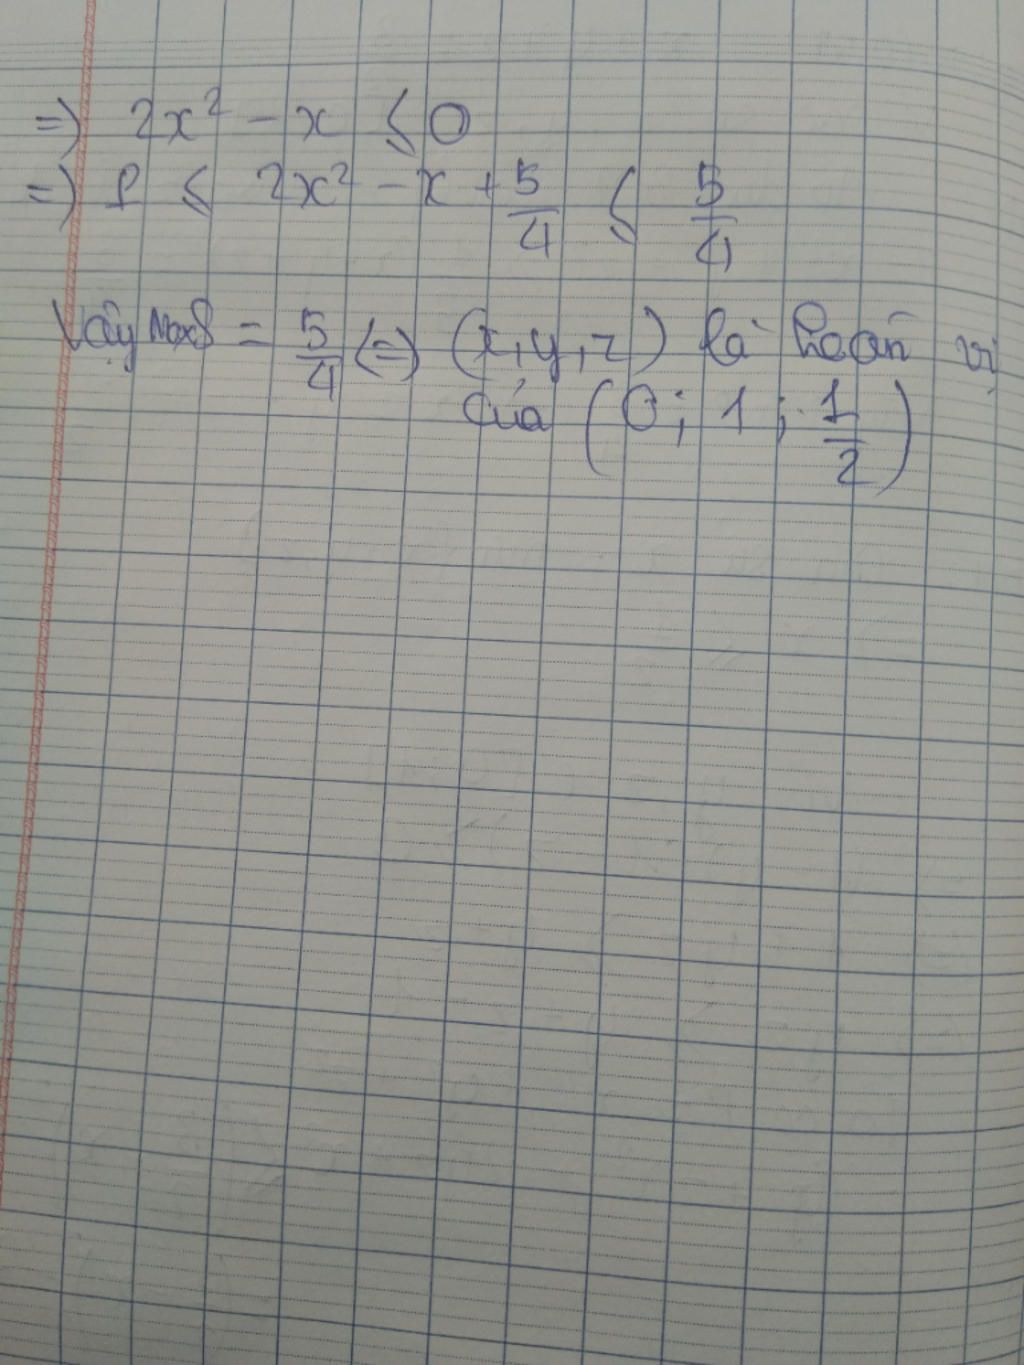 => 2x² - x ≤ 0
=> P ≤ 2x² - x + 5/4 ≤ 5/4
Vậy MaxP = 5/4 <=> (x, y, z) là hoán vị
của (0; 1; 1/2)